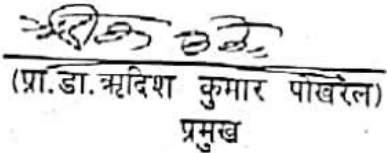 (प्रा.डा.ऋदिश कुमार पोखरेल)
प्रमुख